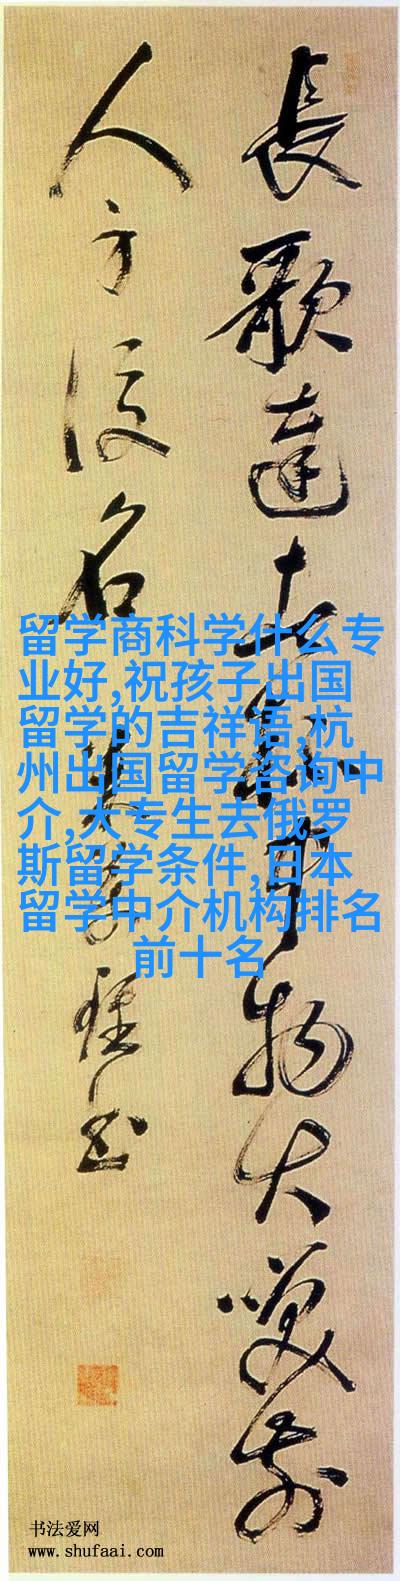 長歌達者杯中物大笑前
人身後名
留学商科学什么专
业好,祝孩子出国
留学的吉祥语,杭
州出国留学咨询中
介,大专生去俄罗
斯留学条件,日本
留学中介机构排名
前十名
书法爱网
www.shufaai.com